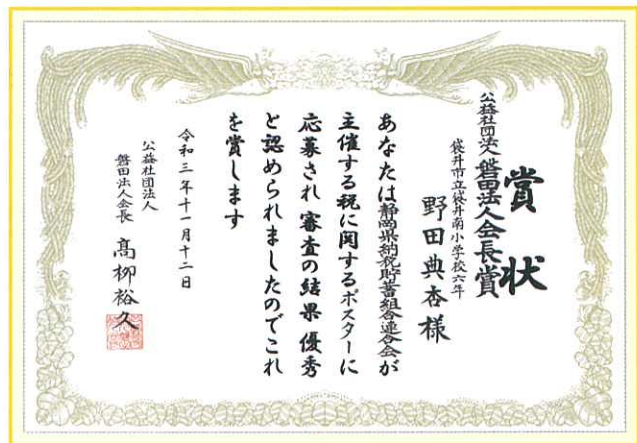 賞状
公益社団法人 磐田法人会長賞
袋井市立袋井南小学校六年
野田典杏様
あなたは静岡県納税貯蓄組合連合会が
主催する税に関するポスターに
応募され審査の結果優秀
と認められましたのでこれ
を賞します
令和三年十一月十二日
公益社団法人
磐田法人会長 髙柳裕久